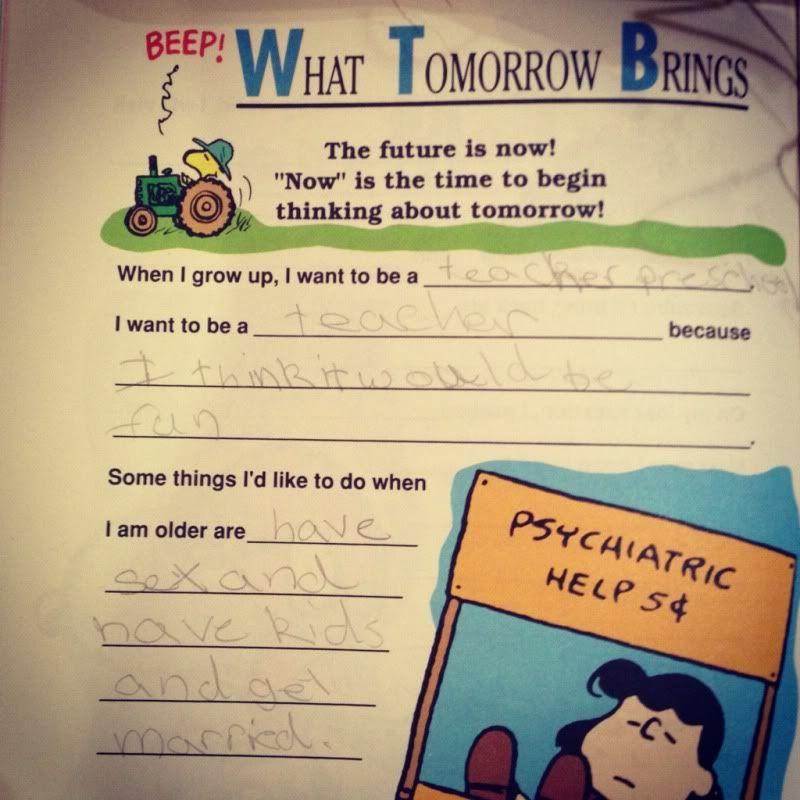 BEEP! WHAT TOMORROW BRINGS
The future is now!
"Now" is the time to begin
thinking about tomorrow!
When I grow up, I want to be a teacher preschool.
I want to be a teacher because
I think it would be
fun.
Some things I'd like to do when
I am older are have
sex and
have kids
and get
married.
PSYCHIATRIC
HELP 5¢